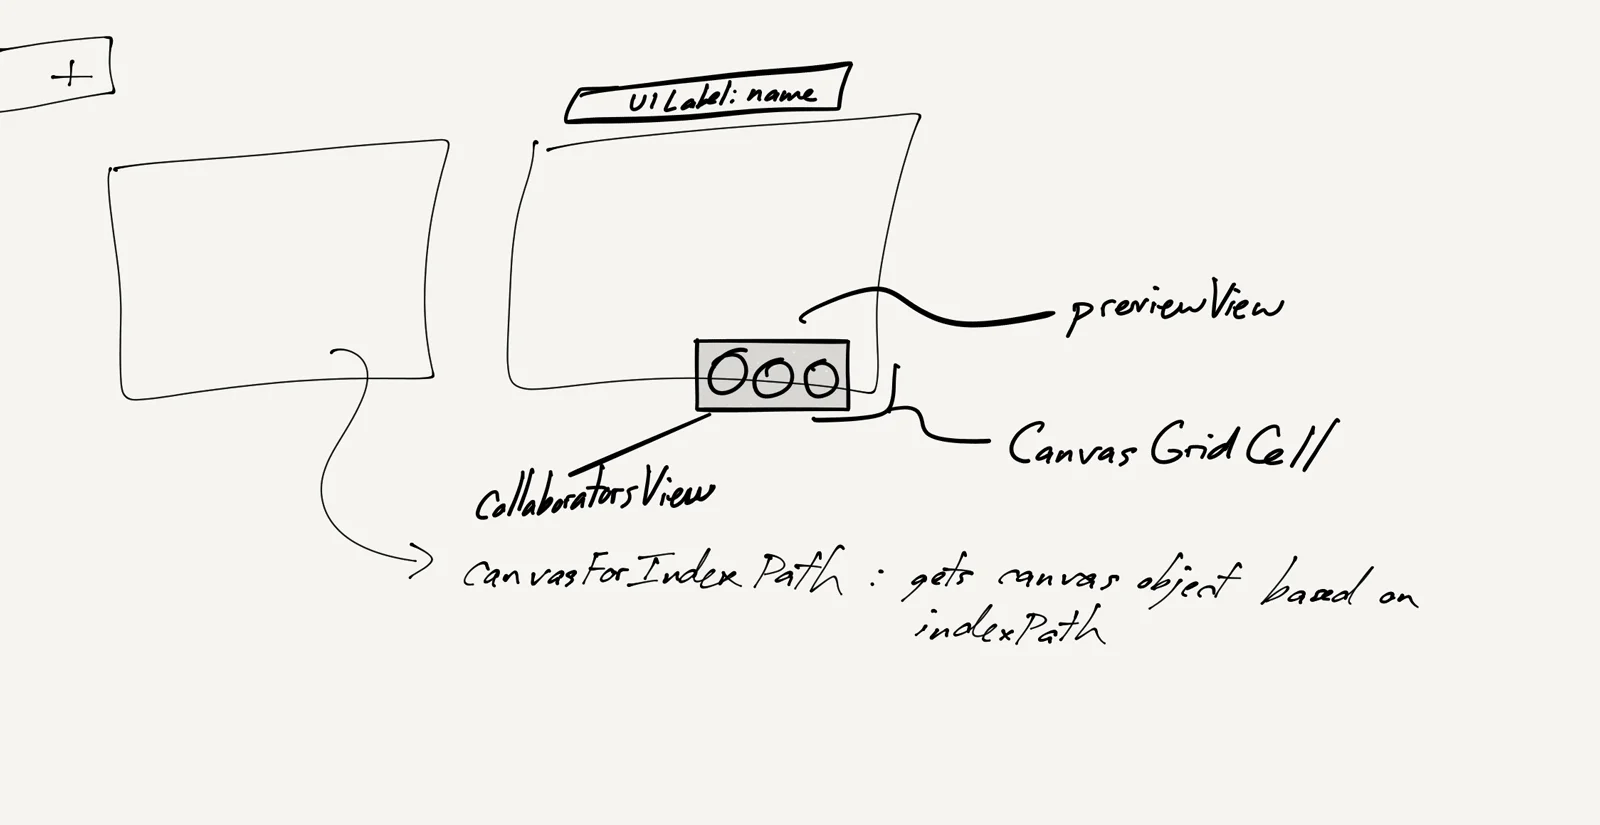 +
UILabel: name
previewView
CanvasGridCell
collaboratorsView
canvasForIndexPath : gets canvas object based on
indexPath